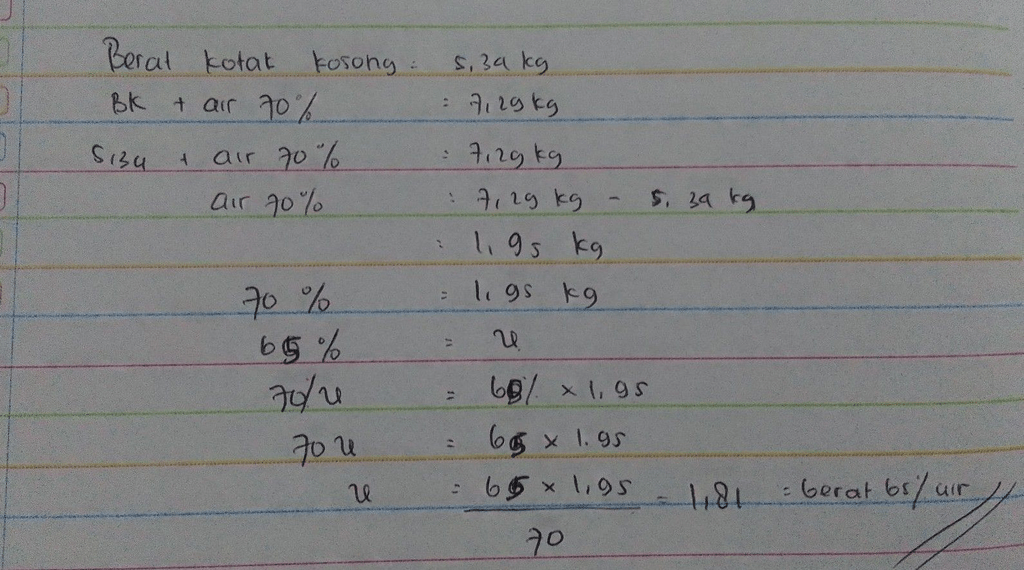 Berat kotak kosong : 5,34 kg
BK + air 70% : 7,29 kg
5,34 + air 70% : 7,29 kg
air 70% : 7,29 kg - 5,34 kg
: 1,95 kg
70 % = 1,95 kg
65 % = x
70% x = 65% × 1,95
70 x = 65 × 1.95
x = 65 × 1,95 = 1,81 = berat 65% air
70